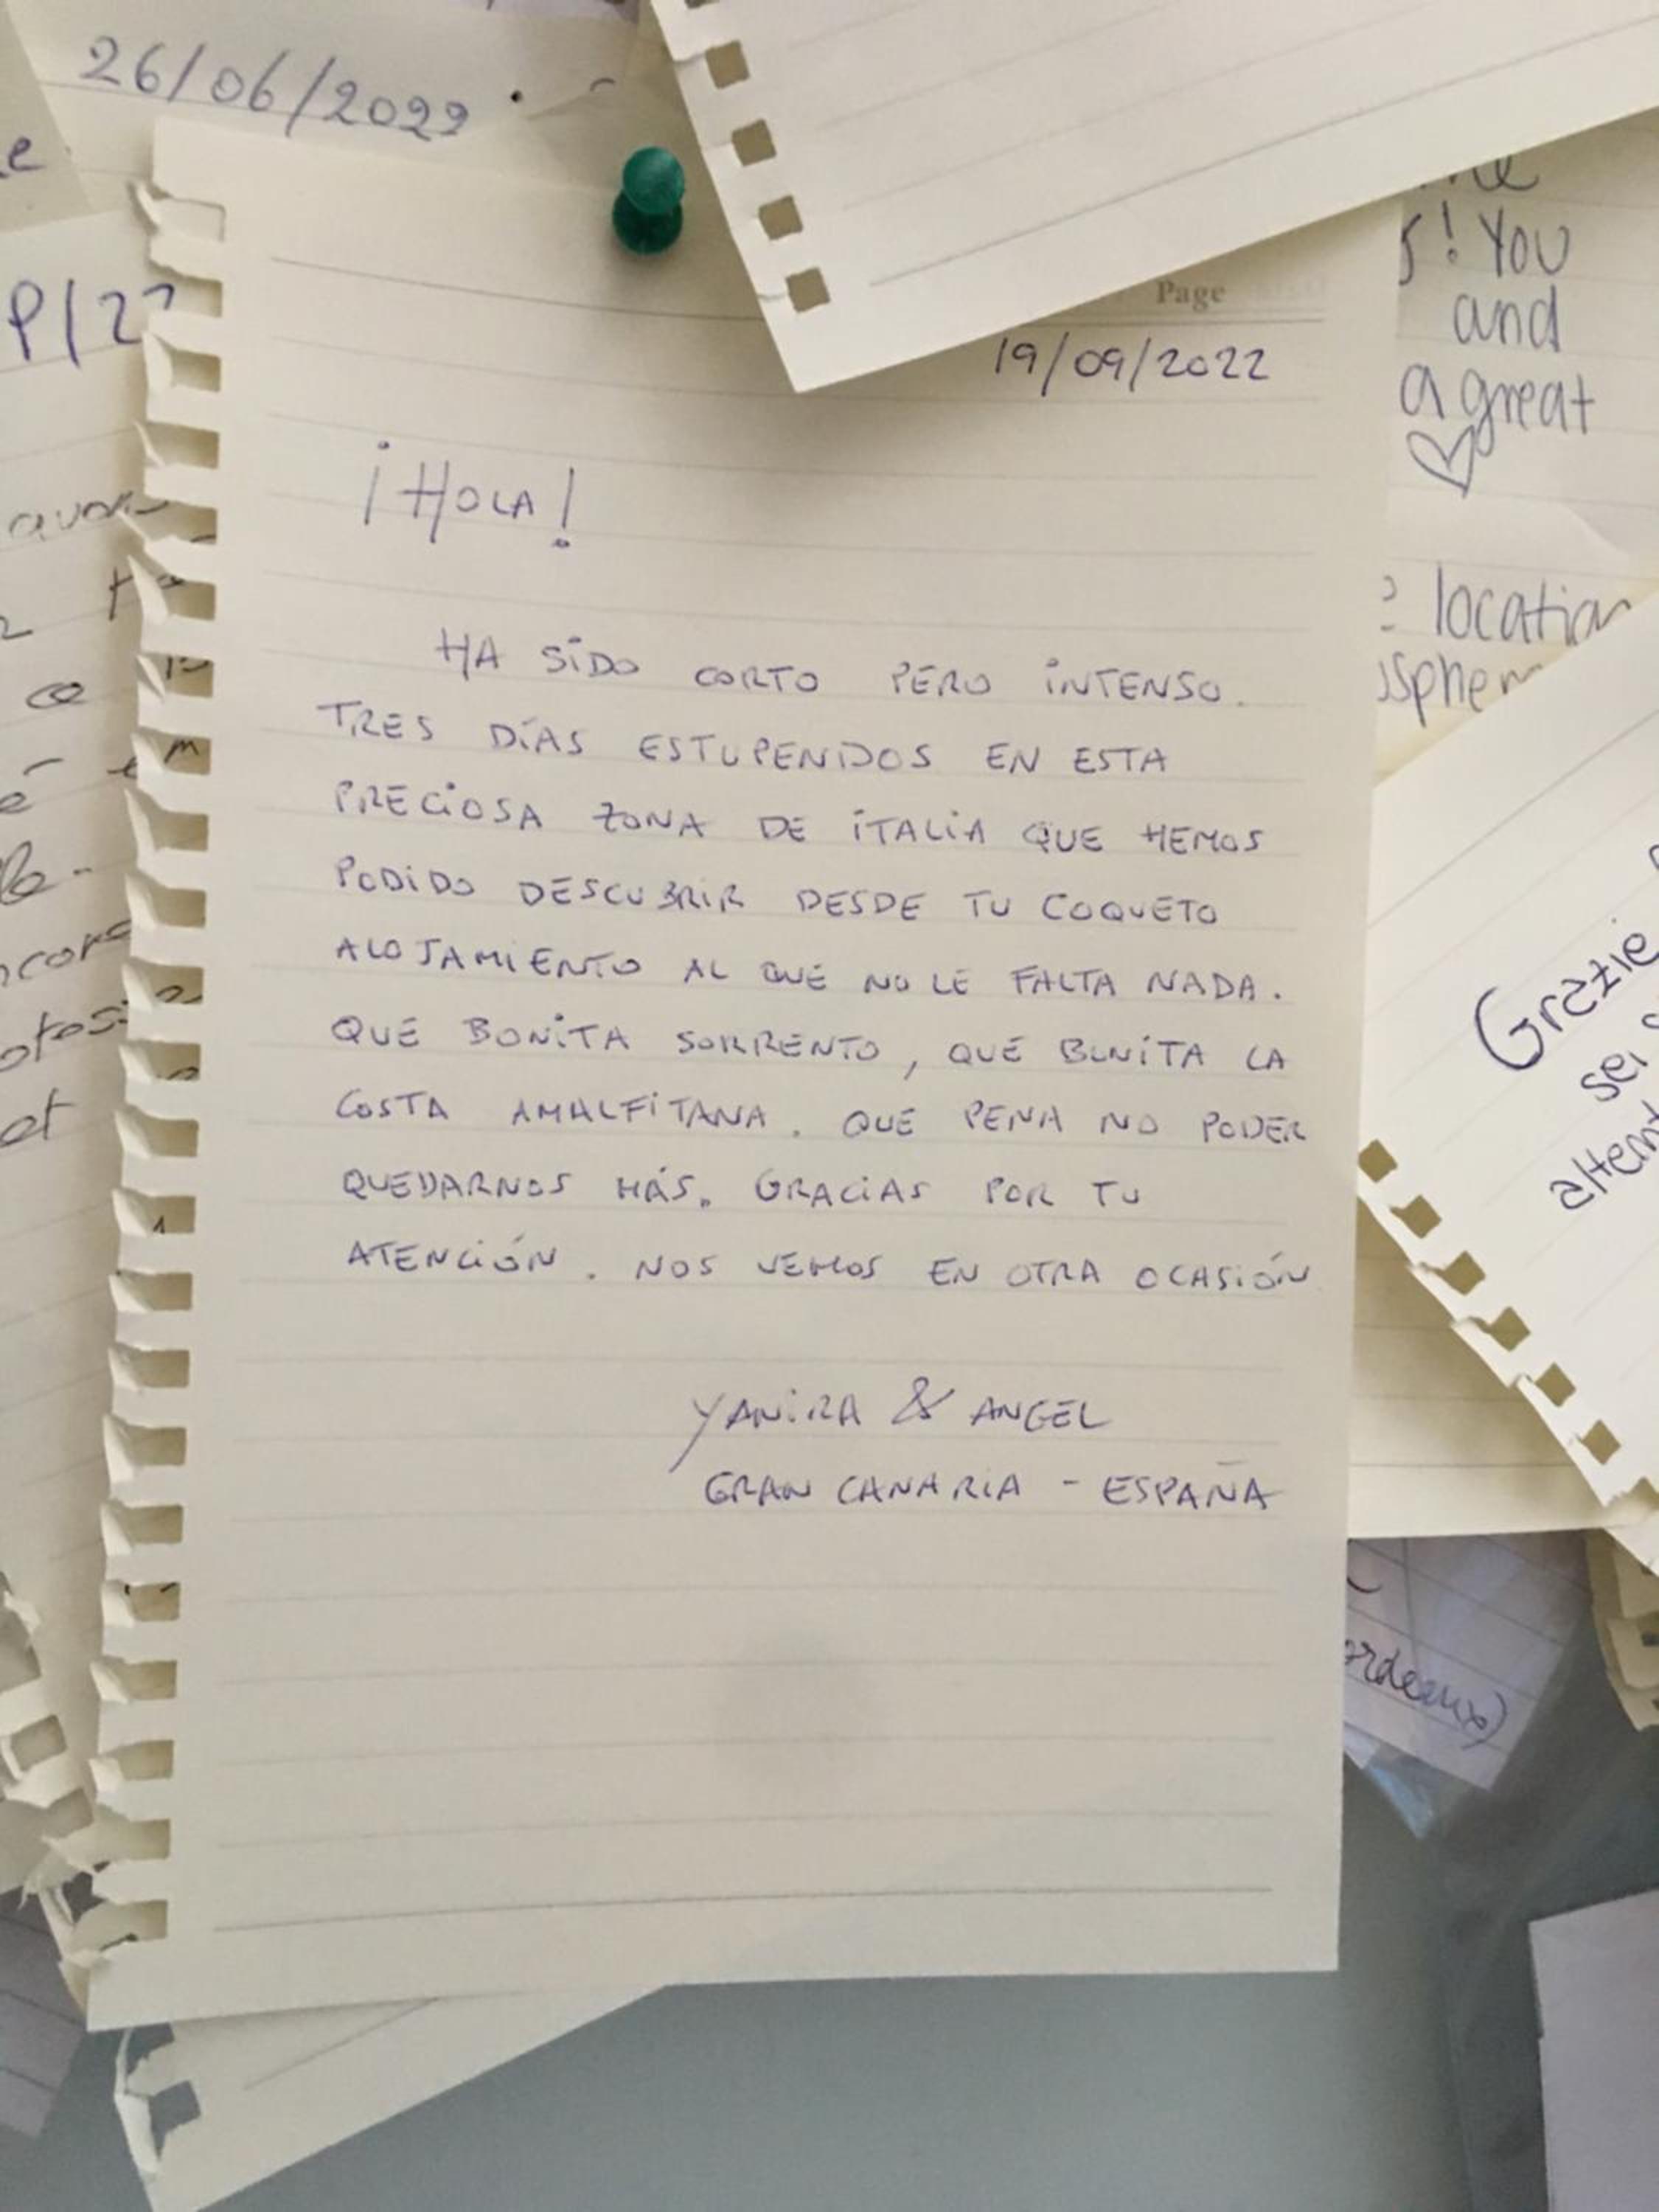 26/06/2022
Page
19/09/2022
¡HOLA!
HA SIDO CORTO PERO INTENSO.
TRES DÍAS ESTUPENDOS EN ESTA
PRECIOSA ZONA DE ITALIA QUE HEMOS
PODIDO DESCUBRIR DESDE TU COQUETO
ALOJAMIENTO AL QUE NO LE FALTA NADA.
QUÉ BONITA SORRENTO, QUÉ BONITA LA
COSTA AMALFITANA. QUÉ PENA NO PODER
QUEDARNOS MÁS. GRACIAS POR TU
ATENCIÓN. NOS VEMOS EN OTRA OCASIÓN
YANIRA & ANGEL
GRAN CANARIA - ESPAÑA
! You
and
a great
location
Grazie
sei